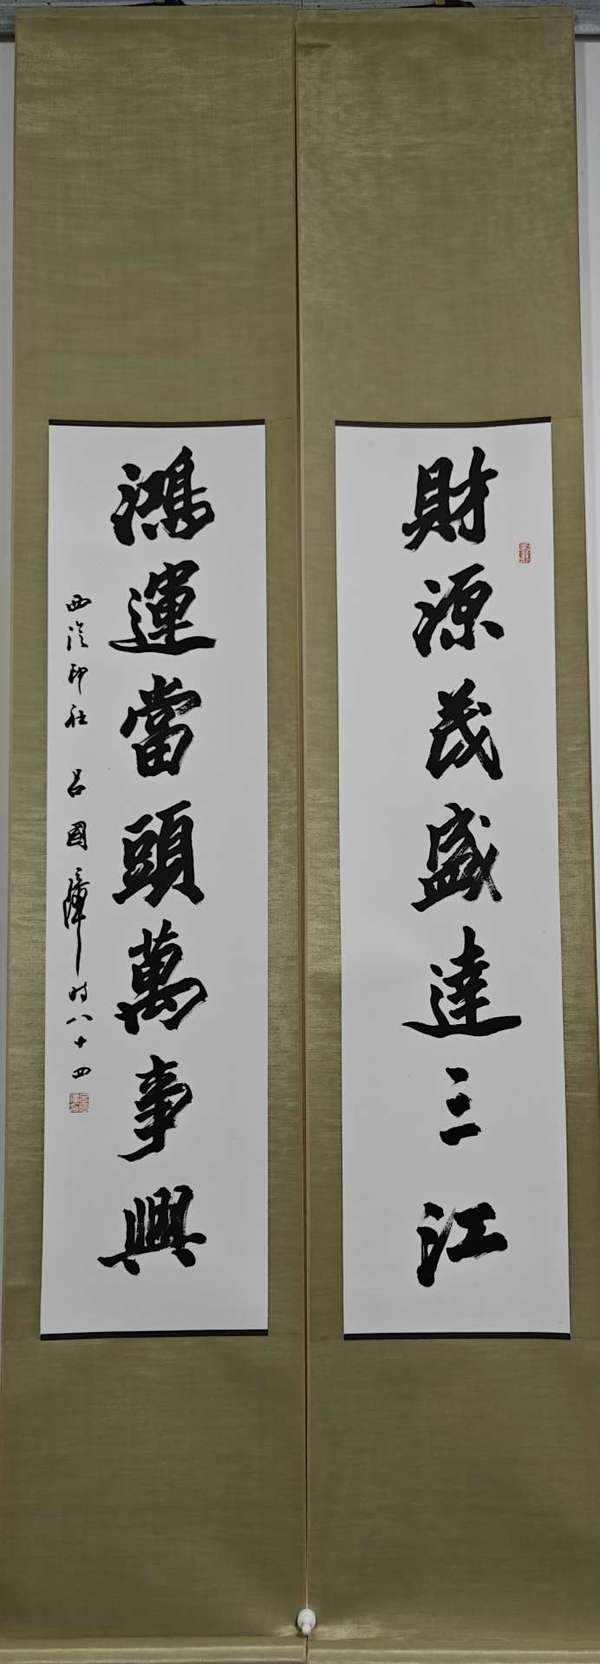 財源茂盛達三江
鴻運當頭萬事興
西泠印社 吕國璋 时八十四